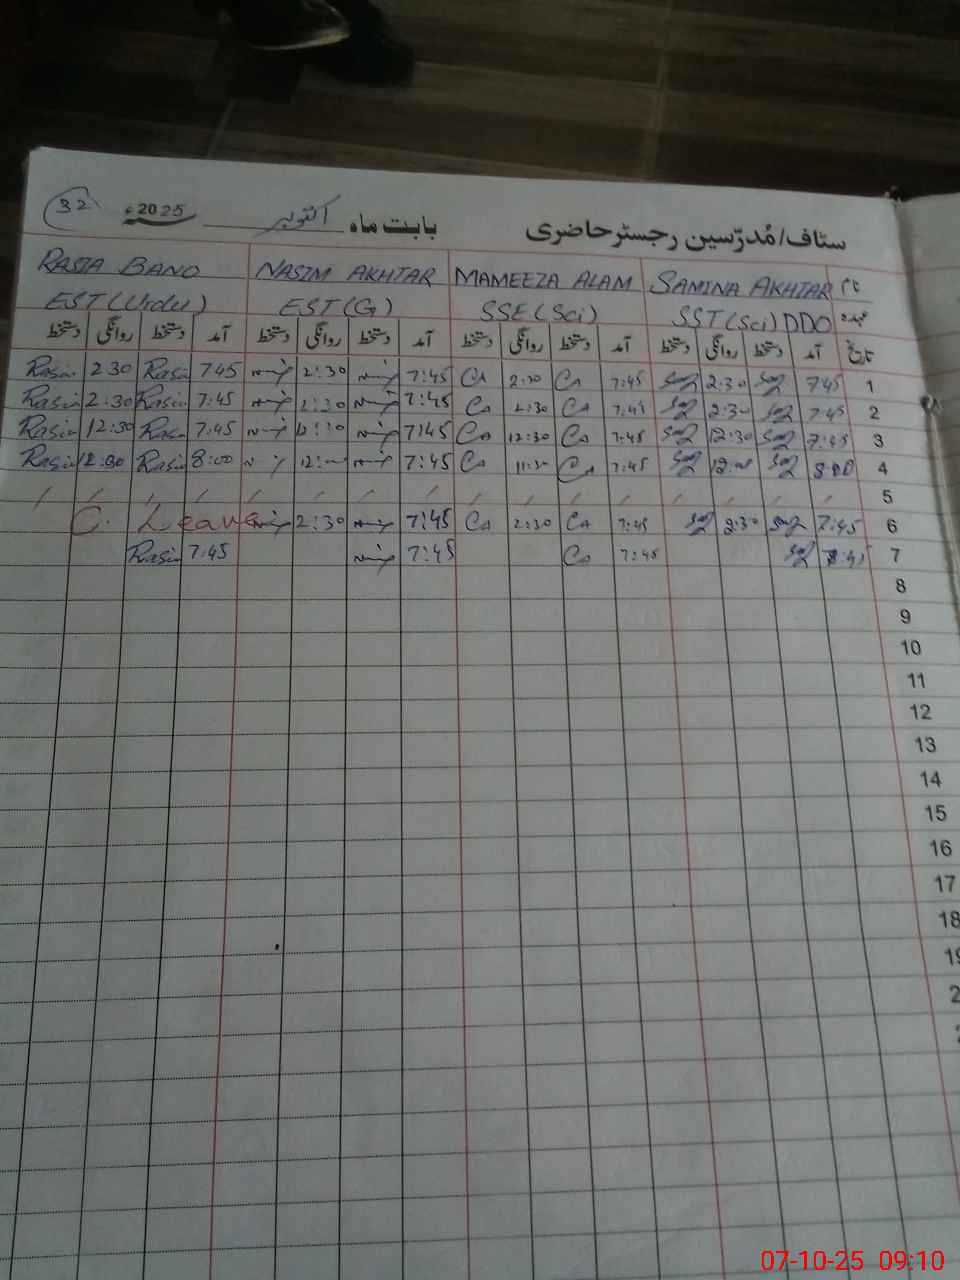 32 ء2025 اکتوبر بابت ماہ سٹاف/مُدرّسین رجسٹر حاضری
RASIA BANO NASIM AKHTAR MAMEEZA ALAM SAMINA AKHTAR نام
EST (Urdu) EST (G) SSE (Sci) SST (Sci) DDO عہدہ
دستخط روانگی دستخط آمد دستخط روانگی دستخط آمد دستخط روانگی دستخط آمد دستخط روانگی دستخط آمد تاریخ
Rasia 2:30 Rasia 7:45 2:30 7:45 CA 2:30 CA 7:45 2:30 7:45 1
Rasia 2:30 Rasia 7:45 2:30 7:45 CA 2:30 CA 7:45 2:30 7:45 2
Rasia 12:30 Rasia 7:45 7:45 CA 12:30 CA 7:45 12:30 7:45 3
Rasia 12:30 Rasia 8:00 7:45 CA 11:30 CA 7:45 8:00 4
/ / / / / / / / / / / / / / / / 5
C. Leave 2:30 7:45 CA 2:30 CA 7:45 2:30 7:45 6
Rasia 7:45 7:45 CA 7:45 7
8
9
10
11
12
13
14
15
16
17
18
07-10-25 09:10